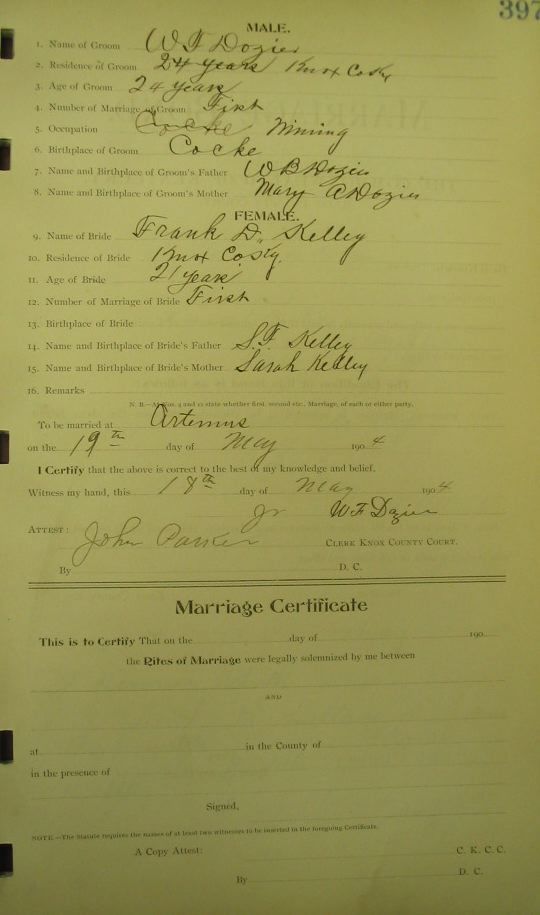 397
MALE.
1. Name of Groom W F Dozier
2. Residence of Groom 24 years Knox Co Ky
3. Age of Groom 24 years
4. Number of Marriage of Groom First
5. Occupation Cocke Mining
6. Birthplace of Groom Cocke
7. Name and Birthplace of Groom's Father W B Dozier
8. Name and Birthplace of Groom's Mother Mary A Dozier
FEMALE.
9. Name of Bride Frank D. Kelley
10. Residence of Bride Knox Co Ky.
11. Age of Bride 21 years
12. Number of Marriage of Bride First
13. Birthplace of Bride
14. Name and Birthplace of Bride's Father S. F. Kelley
15. Name and Birthplace of Bride's Mother Sarah Kelley
16. Remarks
N. B.—At Nos. 4 and 12 state whether first, second etc., Marriage, of each or either party.
To be married at Artemus
on the 19th day of May 1904
I Certify that the above is correct to the best of my knowledge and belief.
Witness my hand, this 18th day of May 1904
Jr W F Dozier
ATTEST: John Parker CLERK KNOX COUNTY COURT.
By D. C.
Marriage Certificate
This is to Certify That on the day of 190
the Rites of Marriage were legally solemnized by me between
AND
at in the County of
in the presence of
Signed,
NOTE—The Statute requires the names of at least two witnesses to be inserted in the foregoing Certificate.
A Copy Attest: C. K. C. C.
By D. C.